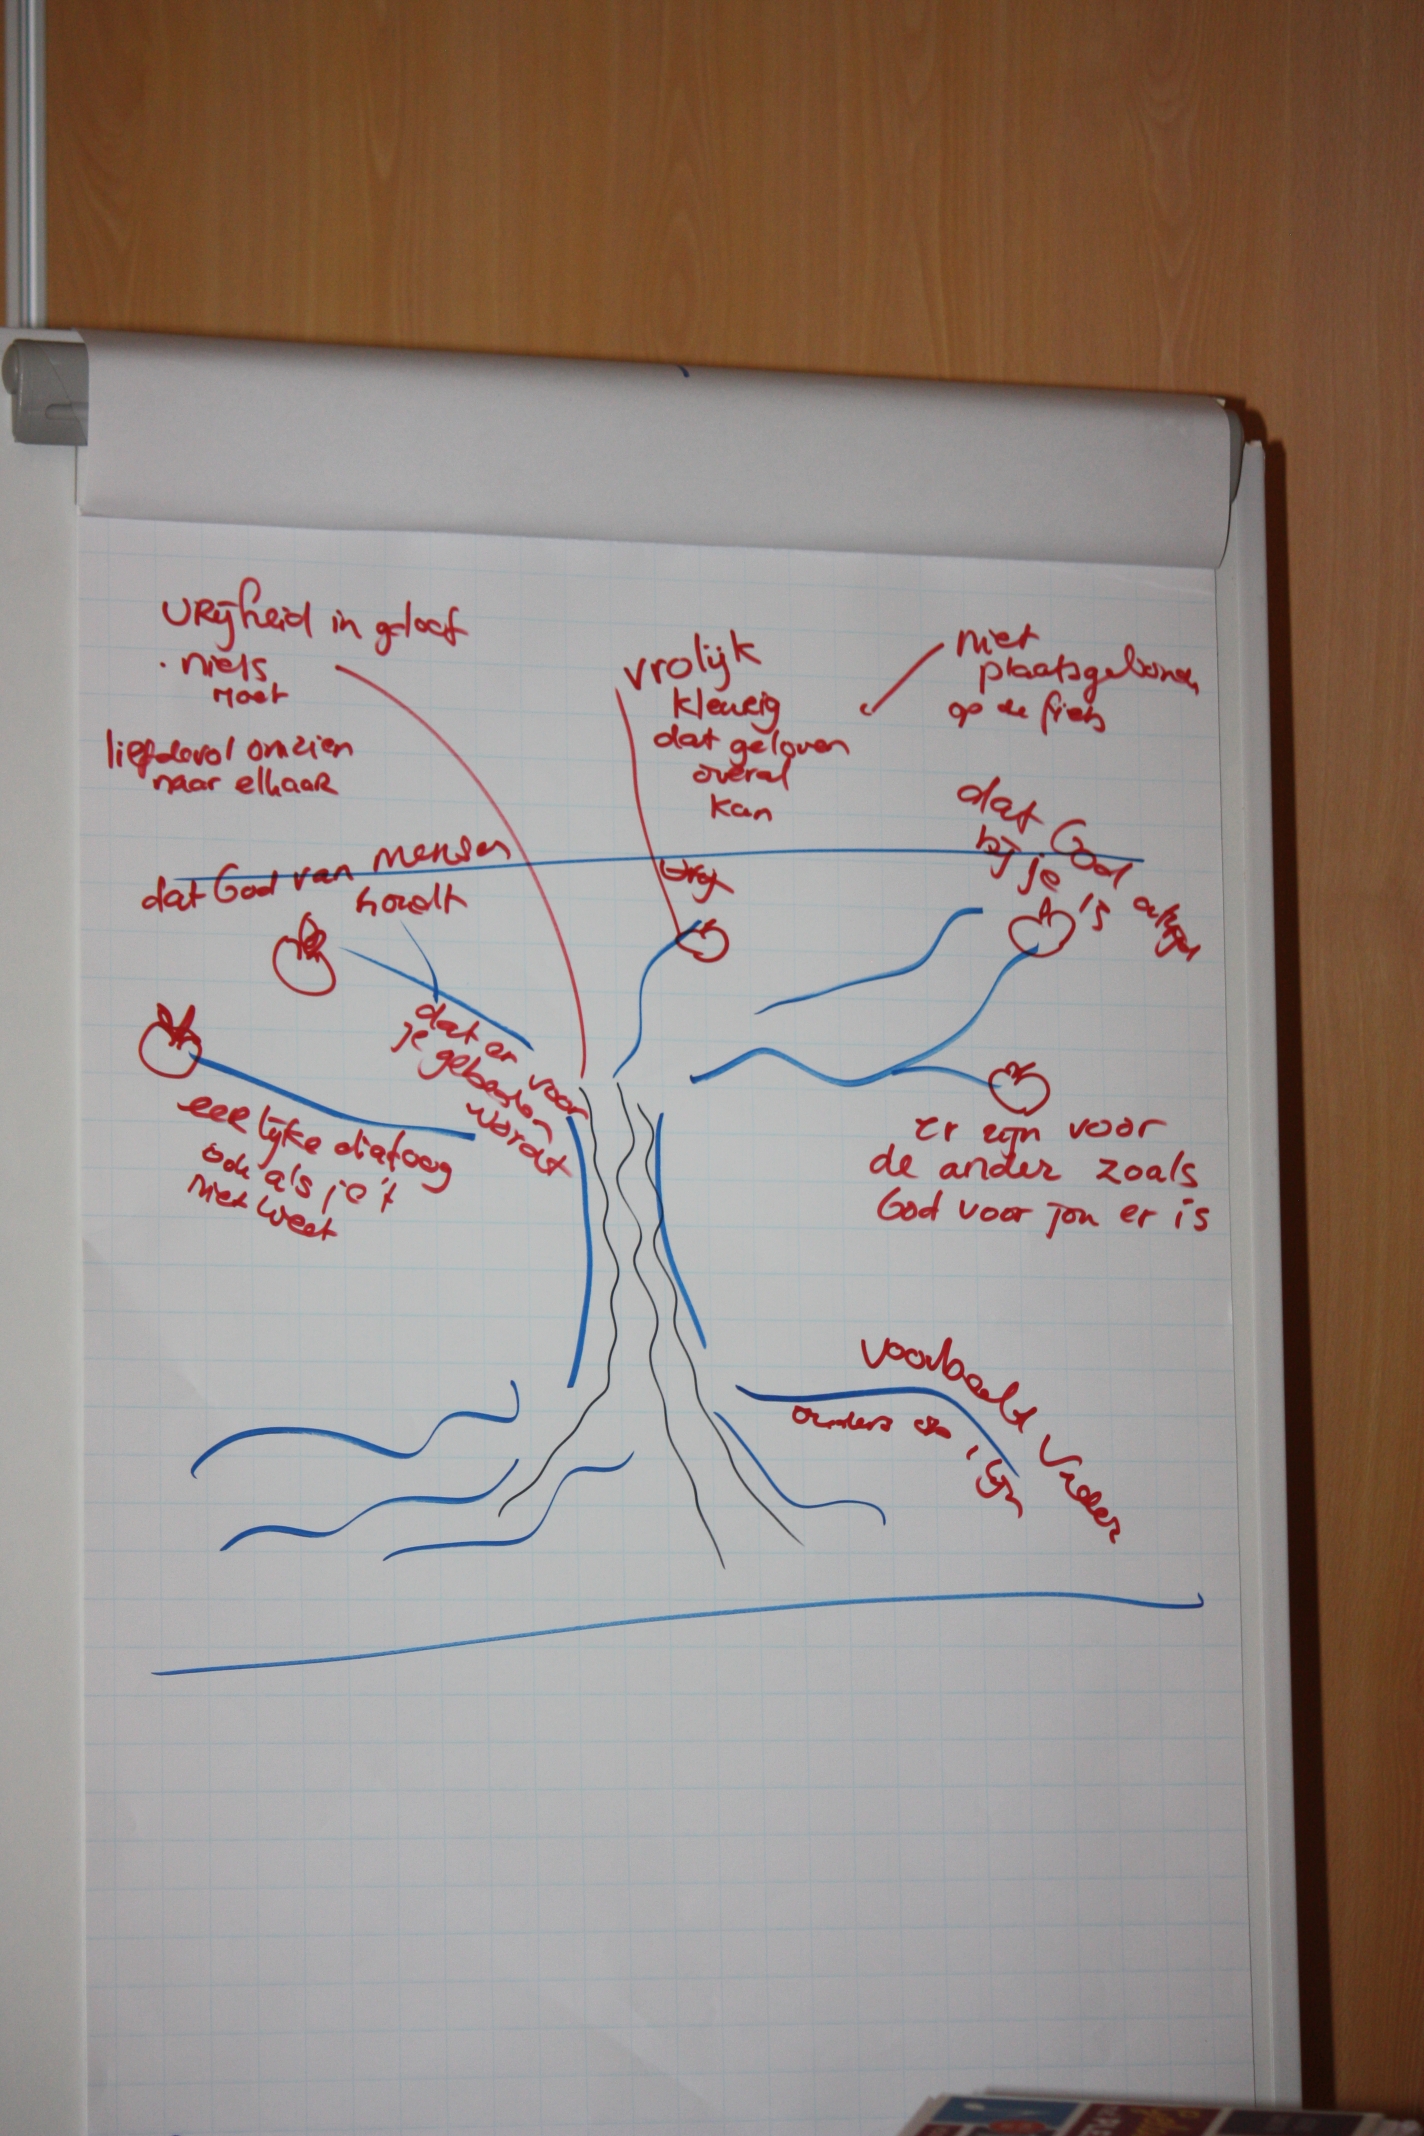 vrijheid in geloof
· niets
moet
liefdevol omzien
naar elkaar
vrolijk
kleurig
dat geloven
overal
kan
niet
plaatsgebonden
op de fiets
dat God altijd
bij je is
dat God van mensen
houdt
dat er voor
je gebeden
wordt
eerlijke dialoog
ook als je 't
niet weet
er zijn voor
de ander zoals
God voor jou er is
voorbeeld
ouders